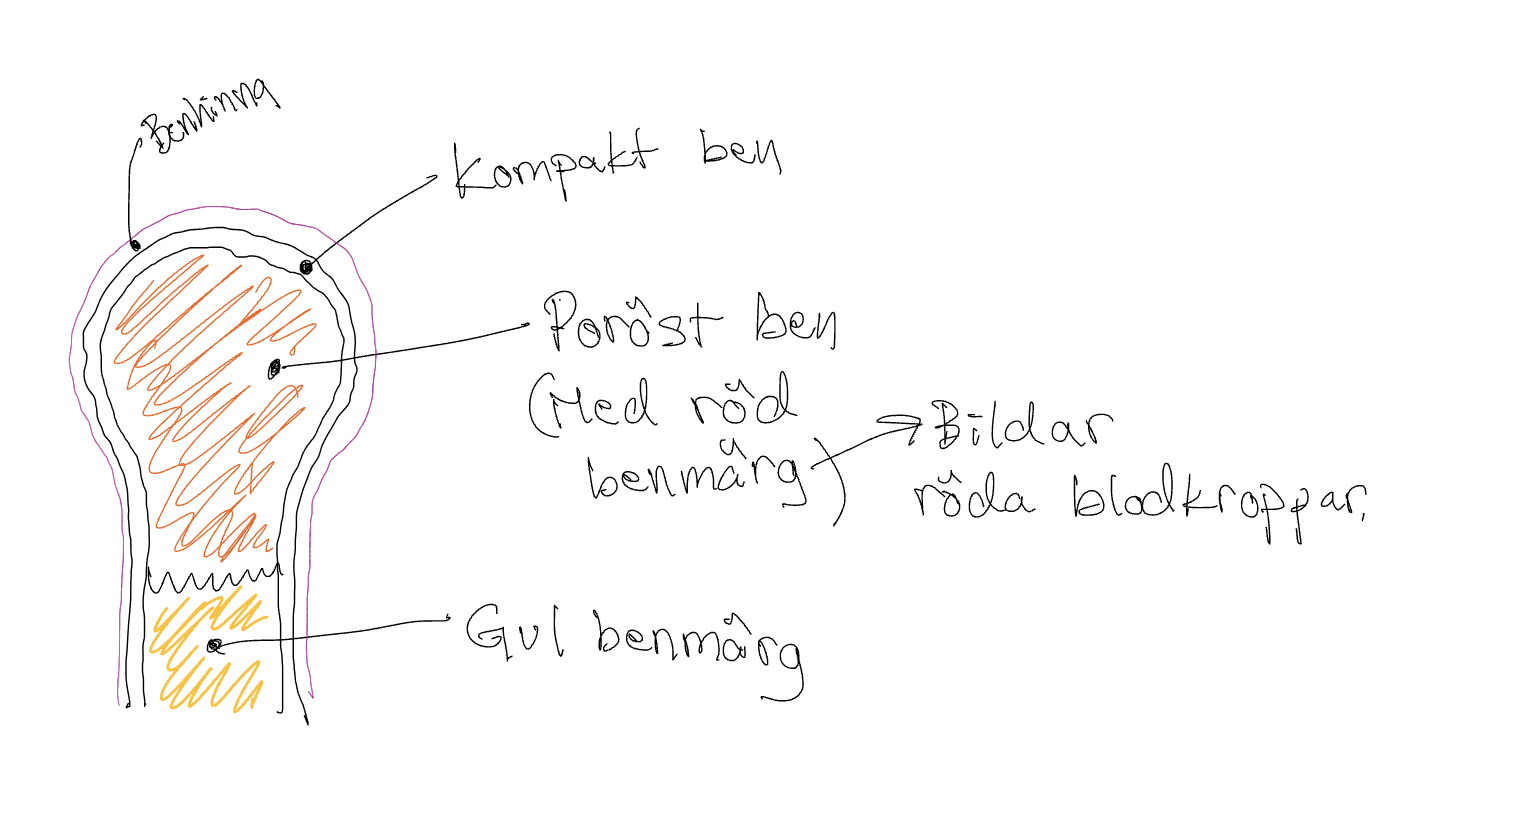 Benhinna
Kompakt ben
Poröst ben
(Med röd
benmärg)
Bildar
röda blodkroppar.
Gul benmärg